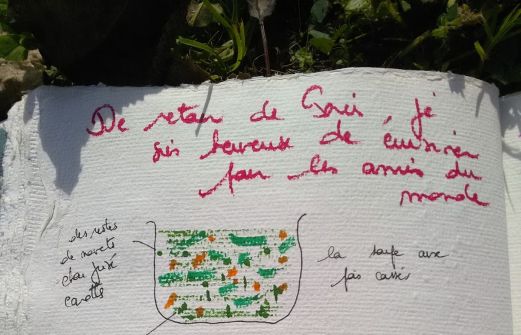 De retour de Paris, je
suis heureux de cuisiner
pour les amis du
monde
des restes
de navets
chou frisé
carottes
la soupe aux
pas cassés